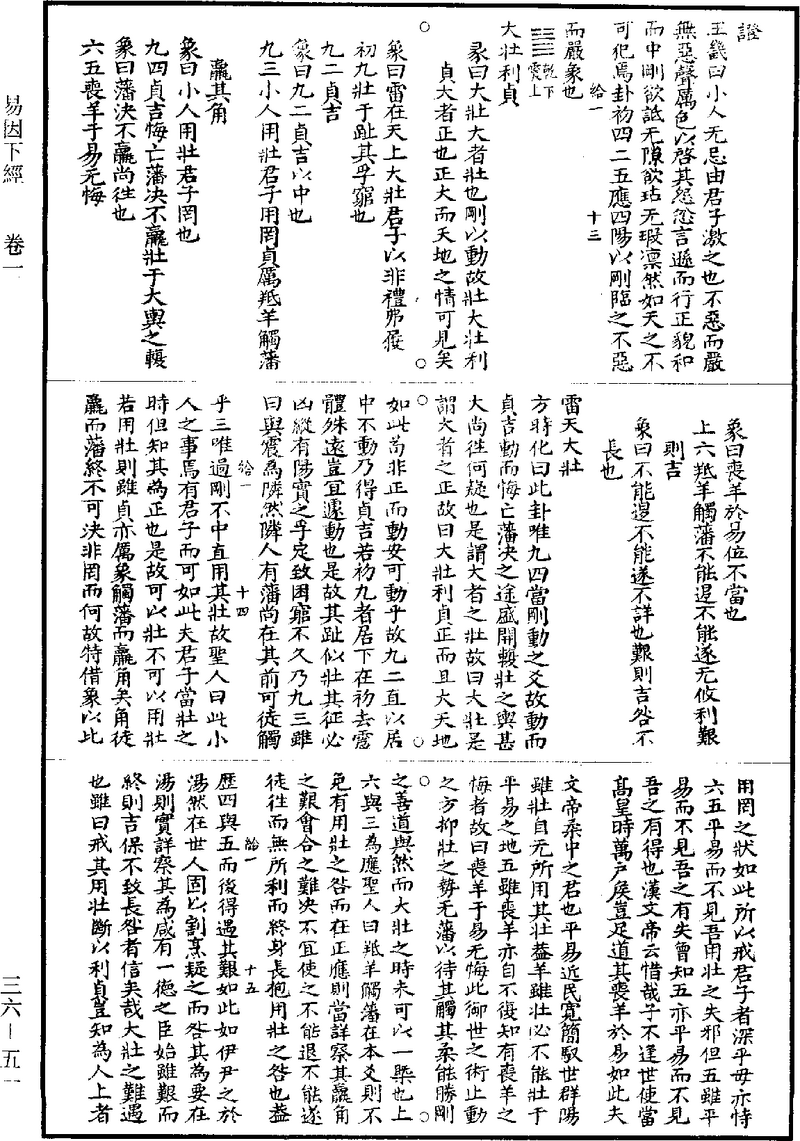 易因下經　卷一
三六—五一
證
王畿曰小人无忌由君子激之也不惡而嚴
無惡聲厲色以啓其怨忿言遜而行正貌和
而中剛欲詆无隙欲玷无瑕凛然如天之不
可犯焉卦初四二五應四陽以剛臨之不惡
給一　十三
而嚴象也
䷡乾下震上
大壯利貞
彖曰大壯大者壯也剛以動故壯大壯利
貞大者正也正大而天地之情可見矣
象曰雷在天上大壯君子以非禮弗履
初九壯于趾其孚窮也
九二貞吉
象曰九二貞吉以中也
九三小人用壯君子用罔貞厲羝羊觸藩
羸其角
象曰小人用壯君子罔也
九四貞吉悔亡藩决不羸壯于大輿之輹
象曰藩決不羸尚徃也
六五喪羊于易无悔
象曰喪羊於易位不當也
上六羝羊觸藩不能退不能遂无攸利艱
則吉
象曰不能退不能遂不詳也艱則吉咎不
長也
雷天大壯
方時化曰此卦唯九四當剛動之爻故動而
貞吉動而悔亡藩决之途盛開輹壯之輿甚
大尚徃何疑也是謂大者之壯故曰大壯是
謂大者之正故曰大壯利貞正而且大天地
如此苟非正而動安可動乎故九二直以居
中不動乃得貞吉若初九者居下在初去震
體殊遠豈宜遽動也是故其趾似壯其征必
凶縱有陽實之孚定致困窮不久乃九三雖
曰與震為隣然隣人有藩尚在其前可徒觸
給一　十四
乎三唯過剛不中直用其壯故聖人曰此小
人之事焉有君子而可如此夫君子當壯之
時但知其為正也是故可以壯不可以用壯
若用壯則雖貞亦厲象觸藩而羸角矣角徒
羸而藩終不可決非罔而何故特借象以此
用罔之狀如此所以戒君子者深乎毋亦恃
六五平易而不見吾用壯之失邪但五雖平
易而不見吾之有失曾知五亦平易而不見
吾之有得也漢文帝云惜哉子不逢世使當
高皇時萬戶侯豈足道其喪羊於易如此夫
文帝柔中之君也平易近民寬簡馭世群陽
雖壯自无所用其壯葢羊雖壯必不能壯于
平易之地五雖喪羊亦自不復知有喪羊之
悔者故曰喪羊于易无悔此御世之術止動
之方抑壯之勢无藩以待其觸其柔能勝剛
之善道與然而大壯之時未可以一槩也上
六與三為應聖人曰羝羊觸藩在本爻則不
免有用壯之咎而在正應則當詳察其羸角
之艱會合之難决不宜使之不能退不能遂
徒徃而無所利而終身長抱用壯之咎也葢
給一　十五
歷四與五而後得遇其艱如此如伊尹之於
湯然在世人固以割烹疑之而咎其為要在
湯則實詳察其為咸有一德之臣始雖艱而
終則吉保不致長咎者信夫哉大壯之難遇
也雖曰戒其用壯斷以利貞豈知為人上者